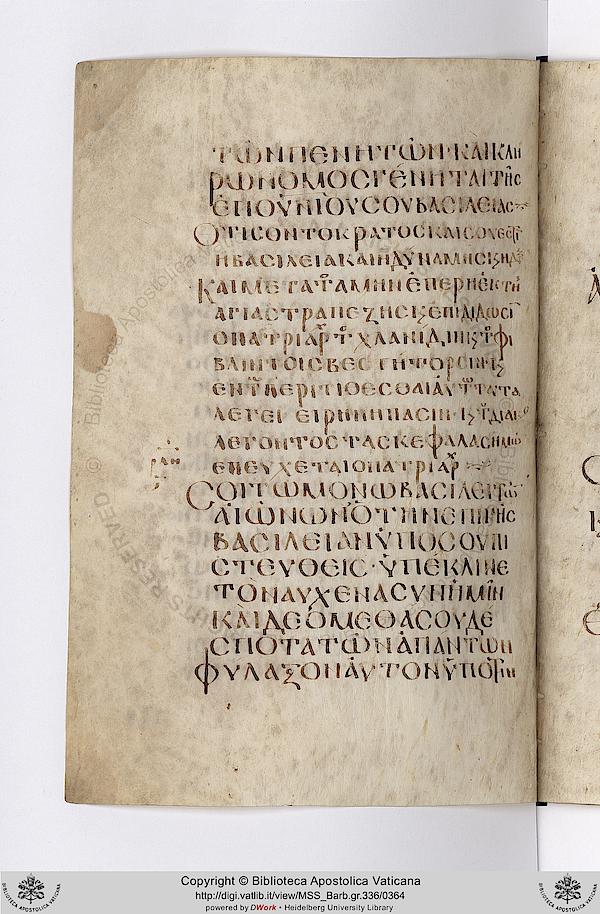 ΤΩΝ ΠΕΝΗΤΩΝ· ΚΑΙ ΚΛΗ
ΡΩΝΟΜΟΣ ΓΕΝΗΤΑΙ ΤΗΣ
ΕΠΟΥΝΙΟΥ ΣΟΥ ΒΑΣΙΛΕΙΑΣ
ΟΤΙ ΣΟΝ ΤΟ ΚΡΑΤΟΣ ΚΑΙ ΣΟΥ
Η ΒΑΣΙΛΕΙΑ ΚΑΙ Η ΔΥΝΑΜΙΣ Ϗ Η
ΚΑΙ ΜΕΤΑ Τ ΑΜΗΝ ΕΠΕΡΗ ΕΚ ΤΗ
ΑΓΙΑΣ ΤΡΑΠΕΖΗΣ Ϗ ΕΠΙΔΙΔΩΣΙ
Ο ΠΑΤΡΙΑΡΧ Τ ΧΛΑΝΙΔΙΝ Ϗ Τ ΦΙ
ΒΛΗΝ ΤΟΙΣ ΒΕΣΤΗΤΟΡΣΙΝ· Ϗ
ΕΝ Τ ΠΕΡΙΤΙΘΕΣΘΑΙ ΑΥΤ ΤΑΥΤΑ
ΛΕΓΕΙ ΕΙΡΗΝΗ ΠΑΣΙΝ· Ϗ Τ ΔΙΑΚΟ
ΛΕΓΟΝΤΟΣ ΤΑΣ ΚΕΦΑΛΑΣ ΗΜΩ
ΕΠΕΥΧΕΤΑΙ Ο ΠΑΤΡΙΑΡΧ
ΣΟΙ ΤΩ ΜΟΝΩ ΒΑΣΙΛΕΙ ΤΩ
ΑΙΩΝΩΝ Ο ΤΗΝ ΕΠΙ ΓΗΣ
ΒΑΣΙΛΕΙΑΝ ΥΠΟ ΣΟΥ ΠΙ
ΣΤΕΥΘΕΙΣ· ΥΠΕΚΛΙΝΕ
ΤΟΝ ΑΥΧΕΝΑ ΣΥΝ ΗΜΙΝ
ΚΑΙ ΔΕΟΜΕΘΑ ΣΟΥ ΔΕ
ΣΠΟΤΑ ΤΩΝ ΑΠΑΝΤΩΝ
ΦΥΛΑΞΟΝ ΑΥΤΟΝ ΥΠΟ ΤΗΝ
Copyright © Biblioteca Apostolica Vaticana
http://digi.vatlib.it/view/MSS_Barb.gr.336/0364
powered by DWork • Heidelberg University Library